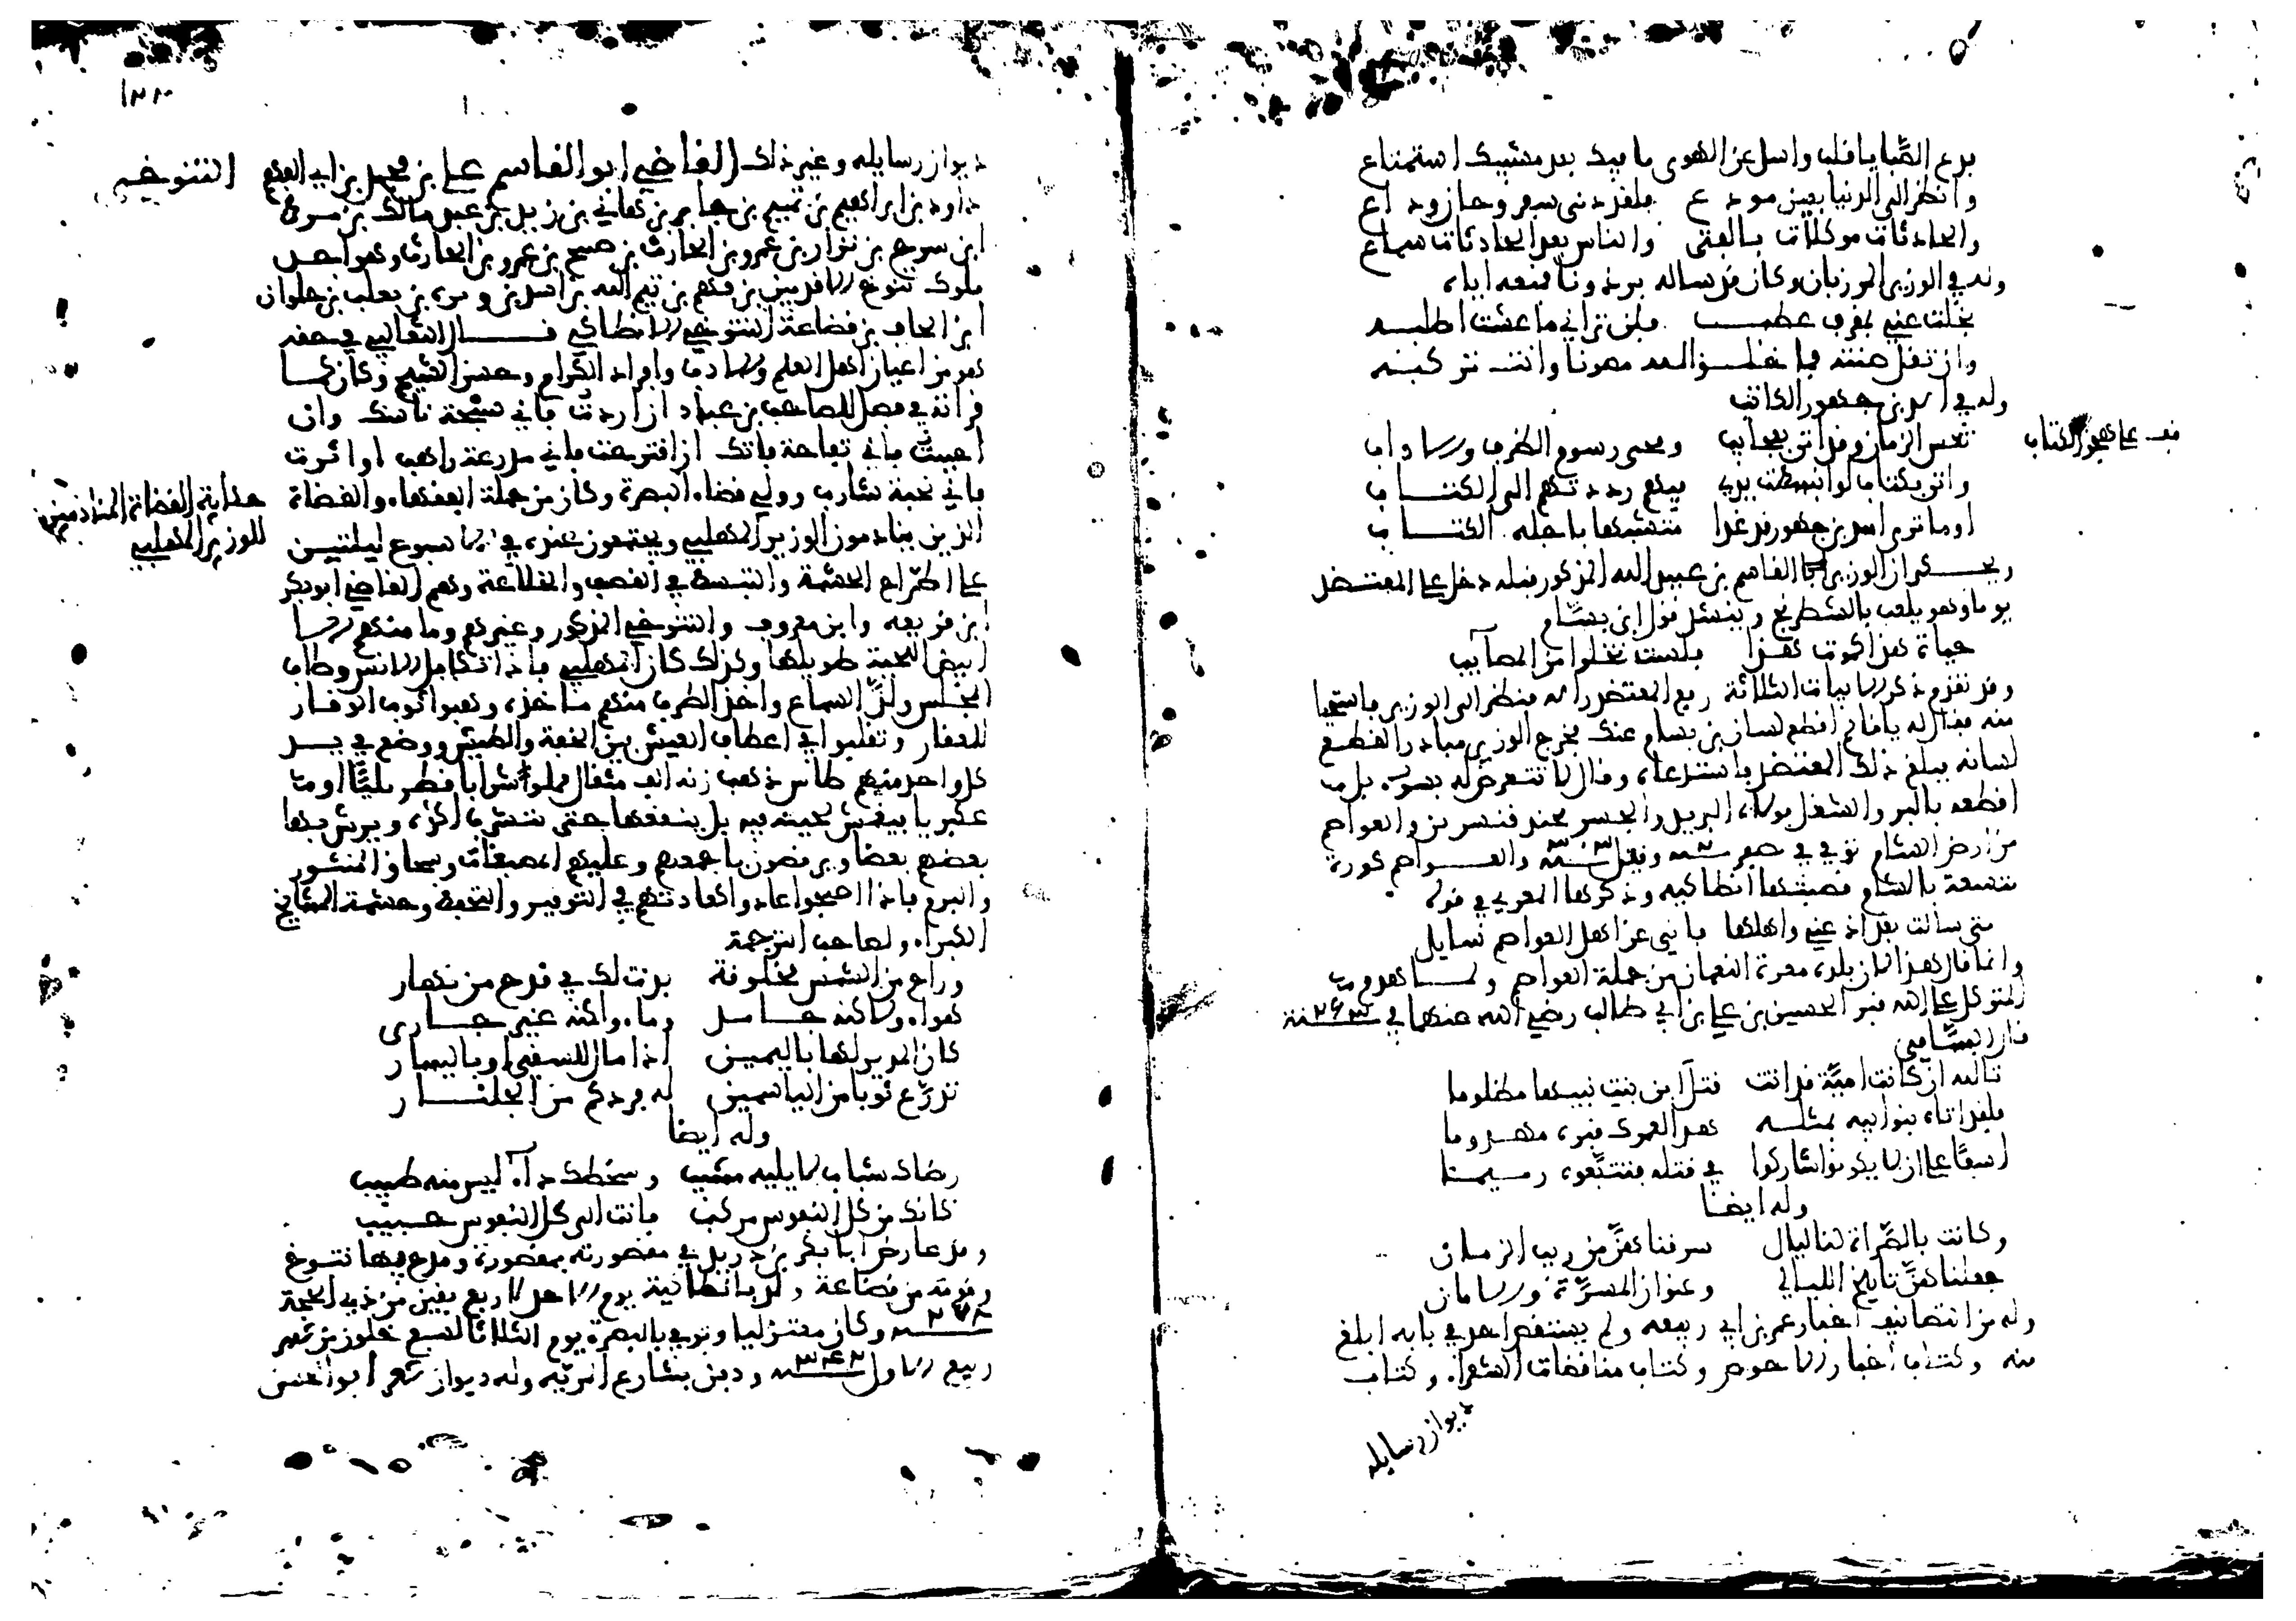 بدع الصبا يا قلب واسل عن الهوى ما فيك بعد مشيبك استمتاع
وانظر الى الدنيا بعين مودع فلقد دنى سفر وحان وداع
والحادثات موكلات بالفتى والناس بعد الحادثات سماع
وله في الوزير المرزبان وكان قد ساله برذونا فمنعه اياه
بخلت عني بمقرف عطب فلن تراني ما عشت اطلبه
وان تقل صنته فما خلق الله مصونا وانت تركبه
وله في اسد بن جهور الكاتب
تعس الزمان وقد اتى بعجاب ومحى رسوم الظرف والاداب
قف على هجو الكتاب
واتى بكتاب لو انبسطت يدي فيهم رددتهم الى الكتاب
اوما ترى اسد بن جهور قد غدا متشبها باجلة الكتاب
ويحكى ان الوزير ابا القاسم بن عبيد الله المذكور قبله دخل على المعتضد
يوما وهو يلعب بالشطرنج وينشد قول ابن بسام
حياة هذا كموت هذا فلست تخلوا من المصايب
وقد تقدم ذكر الابيات الثلاثة رفع المعتضد راسه فنظر الى الوزير فاستحيا
منه فقال له يا قاسم اقطع لسان بن بسام عنك فخرج الوزير مبادرا لقطع
لسانه فبلغ ذلك المعتضد فاستدعاه وقال لا تتعرض له بسوء بل
اقطعه بالبر والشغل فولاه البريد والجسر بجند قنسرين والعواصم
من ارض الشام توفي في صفر وقيل والعواصم كورة
متسعة بالشام قصبتها انطاكية وذكرها المعري في قوله
متى سالت بغداذ عني واهلها فاني عن اهل العواصم تسايل
وانما قال هذا لان بلده معرة النعمان من جملة العواصم ولما هدم
المتوكل على الله قبر الحسين بن علي بن ابي طالب رضي الله عنهما في سنة
قال البسامي
تالله ان كانت امية قد اتت قتل ابن بنت نبيها مظلوما
فلقد اتاه بنو ابيه بمثله هذا لعمرك قبره مهدوما
اسفا على ان لا يكونوا شاركوا في قتله فتتبعوه رميما
وله ايضا
وكانت بالصراة لنا ليال سرقناهن من ريب الزمان
جعلناهن تاريخ الليالي وعنوان المسرة والامان
وله من التصانيف اخبار عمر بن ابي ربيعه ولم يستقص احد في بابه ابلغ
منه وكتاب اخبار الاحوص وكتاب مناقضات الشعراء وكتاب
ديوان رسايله
ديوان رسايله وغير ذلك القاضي ابو القاسم علي بن محمد بن ابي الفهم التنوخي
داود بن ابراهيم بن تميم بن جابر بن هاني بن زيد بن عبيد مالك بن
ابن سرح بن نزار بن عمرو بن الحارث بن صبح بن عمرو بن الحارث وهو احد
ملوك تنوخ الاقدمين بن فهم بن تيم الله بن اسد بن وبرة بن تغلب بن حلوان
ابن الحاف بن قضاعة التنوخي الانطاكي قال الثعالبي في حقه
هو من اعيان اهل العلم والادب وافراد الكرام وحسن الشيم وكان كما
قرات في فصل للصاحب بن عباد ان اردت فاني سبحة ناسك وان
احببت فاني تفاحة فاتك ان اقترحت فاني مدرعة راهب او اثرت
فاني نخبة شارب وولي قضاء البصرة وكان من جملة الفقهاء والقضاة
حكاية القضاة المنادمين للوزير المهلبي
الذين ينادمون الوزير المهلبي ويجتمعون عنده في الاسبوع ليلتين
على اطراح الحشمة والتبسط في القصف والخلاعة وهم القاضي ابو بكر
ابن قريعه وابن معروف والتنوخي المذكور وغيرهم وما منهم الا
ابيض اللحية طويلها وكذلك كان المهلبي فاذا تكامل الانس وطاب
المجلس ولذ السماع واخذ الطرب منهم ماخذه وهبوا ثوب الوقار
للعقار وتقلبوا في اعطاف العيش بين الخفة والطيش ووضع في يد
كل واحد منهم طاس ذهب زنه الف مثقال مملوا شرابا قطربليا او
عكبريا فيغمس لحيته فيه بل ينقعها حتى تتشرب اكثره ويرش بها
بعضهم بعضا ويرقصون باجمعهم وعليهم المصبغات ومخانق المنثور
والبرم فاذا اصبحوا عادوا كعادتهم في التوقير والتحفظ وحشمة المشايخ
الكبراء ولصاحب الترجمة
وراح من الشمس مخلوقة بدت لك في قدح من نهار
هواء ولاكنه جامد وماء ولكنه غير جارى
كان المدير لها باليمين اذا مال للسقي او باليسار
تدرع ثوبا من الياسمين له فردكم من الجلنار
وله ايضا
رضاك شباب لا يليه مشيب وسخطك داء ليس منه طبيب
كانك من كل النفوس مركب فانت الى كل النفوس حبيب
وقد عارض ابا بكر بن دريد في مقصورته بمقصورة ومدح فيها تنوخ
وقومه من قضاعة ولد بانطاكية يوم الاحد لاربع بقين من ذي الحجة
٢٧٨ وكان معتزليا وتوفي بالبصرة يوم الثلاثا لسبع خلون من شهر
ربيع الاول ٣٤٢ ودفن بشارع المربد وله ديوان شعر ابو الحسن